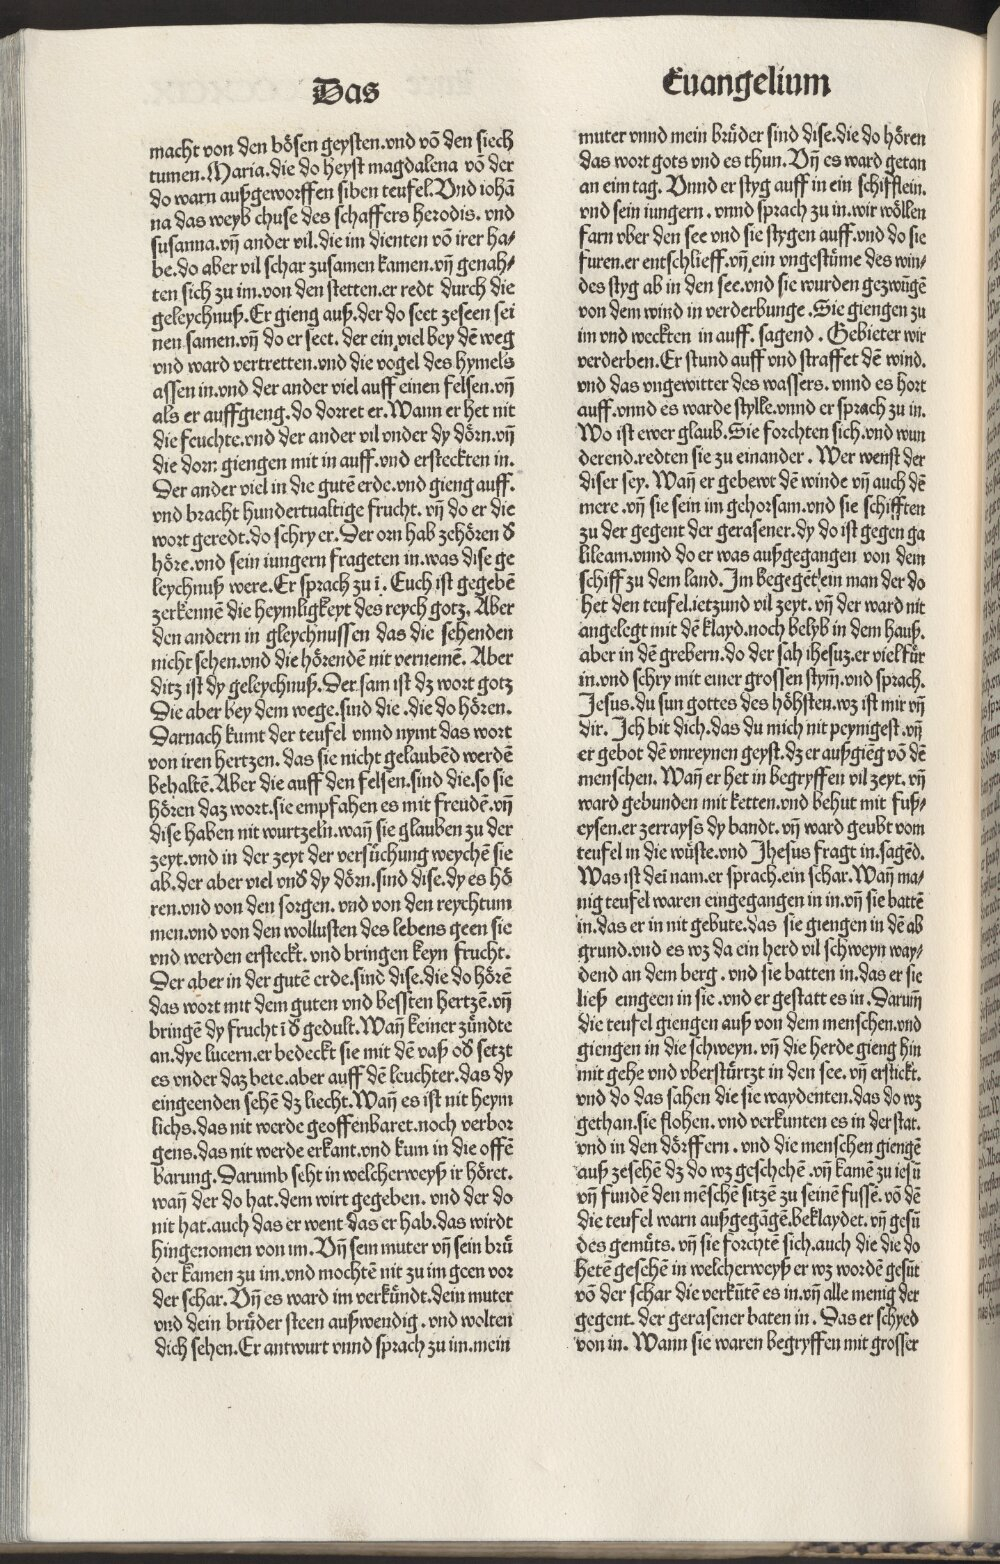 Das
Euangelium
macht von den bösen geysten.vnd võ den siech
tumen.Maria.die do heyst magdalena võ der
do warn außgeworffen siben teufel.Vnd iohã
na das weyb chuse des schaffers herodis. vnd
susanna.vñ ander vil.die im dienten võ irer ha⸗
be.do aber vil schar zusamen kamen.vñ genah⸗
ten sich zu im.von den stetten.er redt durch die
geleychnuß.Er gieng auß.der do seet zeseen sei
nen samen.vñ do er seet. der ein viel bey dẽ weg
vnd ward vertretten.vnd die vogel des hymels
assen in.vnd der ander viel auff einen felsen.vñ
als er auffgieng.do dorret er.Wann er het nit
die feuchte.vnd der ander vil vnder dy dörn.vñ
die dorn giengen mit in auff.vnd ersteckten in.
Der ander viel in die gutẽ erde.vnd gieng auff.
vnd bracht hundertualtige frucht. vñ do er die
wort geredt.do schry er.Der orn hab zehören d̕
höre.vnd sein iungern frageten in.was dise ge
leychnuß were.Er sprach zu ĩ. Euch ist gegebẽ
zerkennẽ die heymligkeyt des reych gotz. Aber
den andern in gleychnussen das die sehenden
nicht sehen.vnd die hörendẽ nit vernemẽ. Aber
ditz ist dy geleychnuß.Der sam ist dz wort gotz
Die aber bey dem wege.sind die .die do hören.
Darnach kumt der teufel vnnd nymt das wort
von iren hertzen. das sie nicht gelaubẽd werdẽ
behaltẽ.Aber die auff den felsen.sind die.so sie
hören daz wort.sie empfahen es mit freudẽ.vñ
dise haben nit wurtzeln.wañ sie glauben zu der
zeyt.vnd in der zeyt der versüchung weychẽ sie
ab.der aber viel vnd̕ dy dörn.sind dise.dy es hö
ren.vnd von den sorgen. vnd von den reychtum
men.vnd von den wollusten des lebens geen sie
vnd werden ersteckt. vnd bringen keyn frucht.
Der aber in der gutẽ erde.sind dise.die do hörẽ
das wort mit dem guten vnd bessten hertzẽ.vñ
bringẽ dy frucht ĩ d̕ gedult.Wañ keiner zündte
an.dye lucern.er bedeckt sie mit dẽ vaß od̕ setzt
es vnder daz bete.aber auff dẽ leuchter.das dy
eingeenden sehẽ dz liecht.Wañ es ist nit heym
lichs.das nit werde geoffenbaret.noch verbor
gens.das nit werde erkant.vnd kum in die offẽ
barung.Darumb seht in welcherweyß ir höret.
wañ der do hat.dem wirt gegeben. vnd der do
nit hat.auch das er went das er hab.das wirdt
hingenomen von im.Vñ sein muter vñ sein brü
der kamen zu im.vnd mochtẽ nit zu im geen vor
der schar.Vñ es ward im verkündt.dein muter
vnd dein brüder steen außwendig. vnd wolten
dich sehen.Er antwurt vnnd sprach zu im.mein
muter vnnd mein brüder sind dise.die do hören
das wort gots vnd es thun.Vñ es ward getan
an eim tag. Vnnd er styg auff in ein schifflein.
vnd sein iungern . vnnd sprach zu in.wir wöllen
farn vber den see vnd sie stygen auff.vnd do sie
furen.er entschlieff.vñ ein vngestüme des win⸗
des styg ab in den see.vnd sie wurden gezwũgẽ
von dem wind in verderbunge .Sie giengen zu
im vnd weckten in auff. sagend . Gebieter wir
verderben.Er stund auff vnd straffet dẽ wind.
vnd das vngewitter des wassers. vnnd es hort
auff.vnnd es warde stylle.vnnd er sprach zu in.
Wo ist ewer glaub.Sie forchten sich.vnd wun
derend.redten sie zu einander . Wer wenst der
diser sey. Wañ er gebewt dẽ winde vñ auch dẽ
mere .vñ sie sein im gehorsam.vnd sie schifften
zu der gegent der gerasener.dy do ist gegen ga
lileam.vnnd do er was außgegangen von dem
schiff zu dem land. Im begegẽt ein man der do
het den teufel.ietzund vil zeyt. vñ der ward nit
angelegt mit dẽ klayd.noch belyb in dem hauß.
aber in dẽ grebern.do der sah ihesuz.er viel für
in.vnd schry mit einer grossen stym̃.vnd sprach.
Jesus.du sun gottes des höhsten.wz ist mir vñ
dir. Ich bit dich.das du mich nit peynigest .vñ
er gebot dẽ vnreynen geyst.dz er außgiẽg võ dẽ
menschen. Wañ er het in begryffen vil zeyt. vñ
ward gebunden mit ketten.vnd behut mit fuß⸗
eysen.er zerrayss dy bandt. vñ ward geubt vom
teufel in die wüste.vnd Jhesus fragt in.sagẽd.
Was ist deĩ nam.er sprach.ein schar.Wañ ma⸗
nig teufel waren eingegangen in in.vñ sie battẽ
in.das er in nit gebute.das sie giengen in dẽ ab
grund.vnd es wz da ein herd vil schweyn way⸗
dend an dem berg . vnd sie batten in.das er sie
ließ eingeen in sie .vnd er gestatt es in .Daruñ
die teufel giengen auß von dem menschen.vnd
giengen in die schweyn. vñ die herde gieng hin
mit gehe vnd vberstürtzt in den see. vñ erstickt.
vnd do das sahen die sie waydenten.das do wz
gethan.sie flohen. vnd verkunten es in der stat.
vnd in den dörffern . vnd die menschen giengẽ
auß zesehẽ dz do wz geschehẽ .vñ kamẽ zu iesũ
vñ fundẽ den mẽschẽ sitzẽ zu seinẽ fussẽ. võ dẽ
die teufel warn außgegãgẽ.beklaydet. vñ gesũ
des gemüts. vñ sie forchtẽ sich.auch die die do
hetẽ gesehẽ in welcherweyß er wz wordẽ gesũt
võ der schar die verkũtẽ es in.vñ alle menig der
gegent. der gerasener baten in . Das er schyed
von in. Wann sie waren begryffen mit grosser